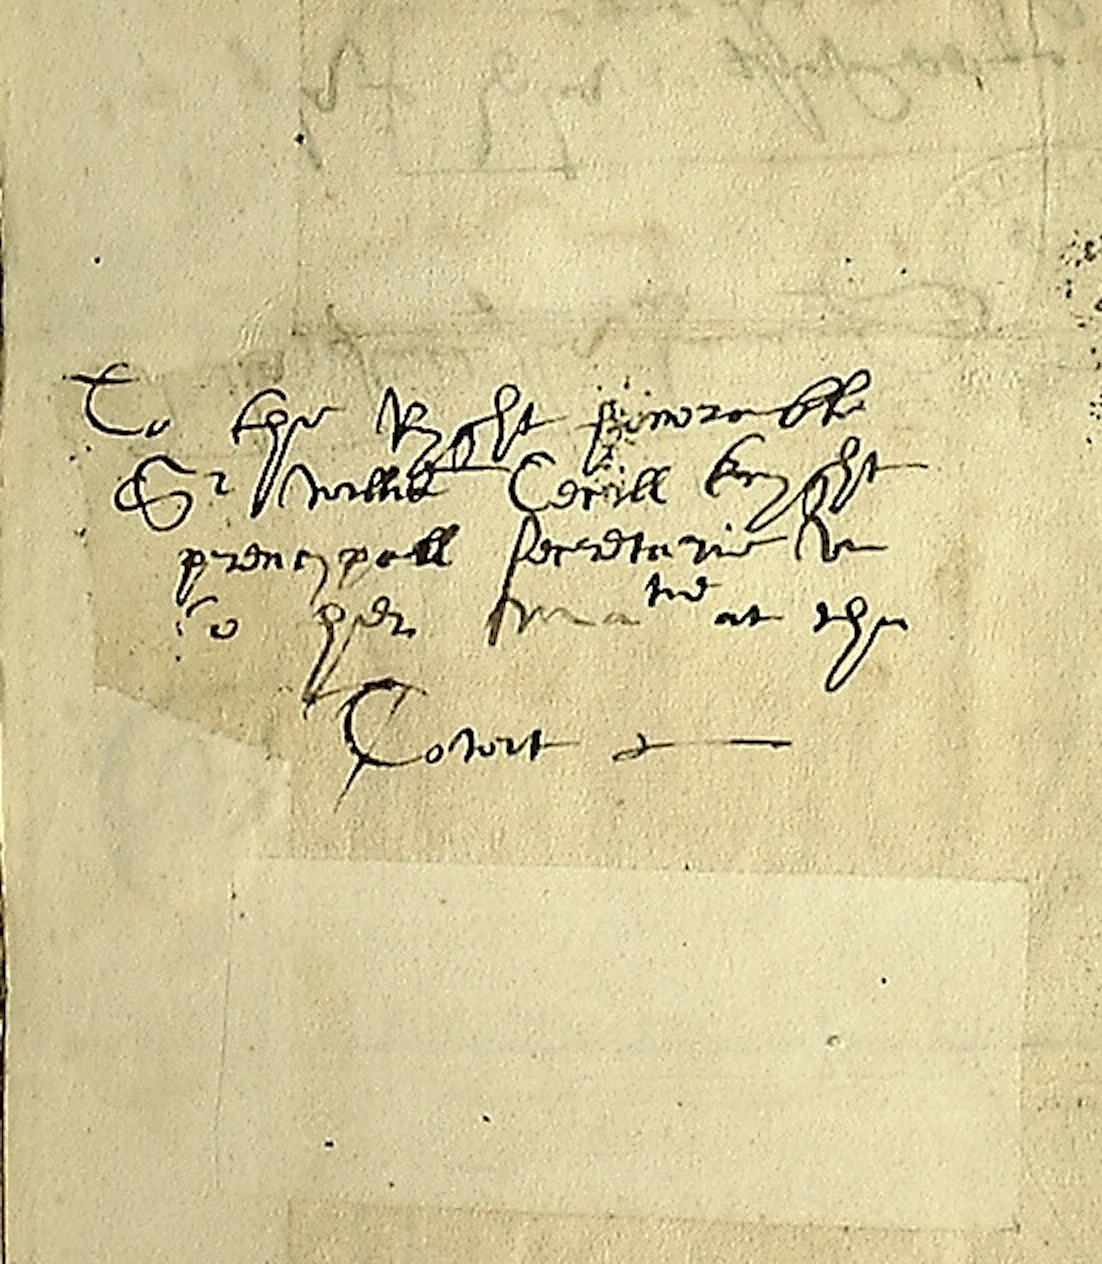 To the Ryght honorable
Sr Willm̃ Cecill knyght
prencypall Secretarie
to her matie at the
Cowrt